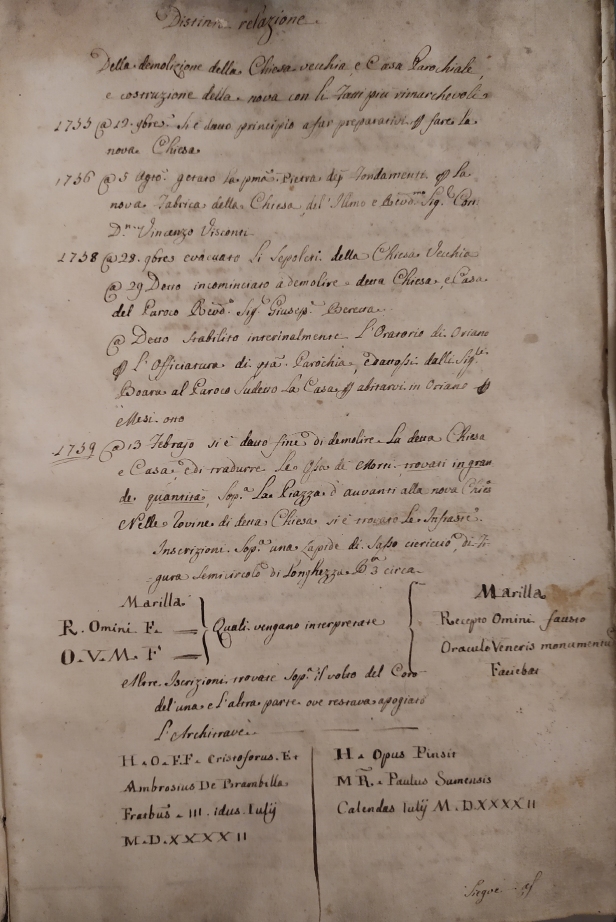 Distinta relazione
Della demolizione della Chiesa vecchia, e Casa Parochiale,
e costruzione della nova con li Fatti piu rimarchevoli
1755 @ 12. gbre. si è dato principio a far preparativi p fare la
nova Chiesa
1756 @ 5 Agto. getato la pma. Pietra de fondamenti p la
nova Fabrica della Chiesa, dal' Illmo e Revdmo Sigr. Con
Dn. Vincenzo Visconti
1758 @ 28. gbre evacuato li Sepolcri della Chiesa Vecchia
@ 29 Detto incominciato a demolire detta Chiesa, e Casa
del Paroco Revdo. Sigr. Giusepe. Beretta
@ Detto stabilito interinalmente L'Oratorio di Oriano
p L'Officiatura di qta. Parochia, e datosi dalli Sigri.
Boara al Paroco sudetto La Casa p abitarvi in Oriano p
Mesi . ono
1759 @ 13 Febrajo si è dato fine di demolire La detta Chiesa
e Casa, e di tradurre Le ossa de Morti trovati in gran
de quantità, Sopa. La Piazza d'avvanti alla nova Chiesa
Nelle rovine di detta Chiesa si è trovato Le Infrastte.
Inscrizioni Sopa. una Lapide di Sasso di Fi
gura Semicircolo. di Longhezza Ba. 3 circa
Marilla
R. Omini F.
O. V. M. F.
Quali vengano interpretate
Marilla
Recepto Omini fausto
Oraculo Veneris monumentum
Faciebat
Altre Iscrizioni trovate Sopa. il volto del Coro
del'una e L'altra parte ove restava apogiato
L'Architrave
H. O. F.F. Cristoforus. Et
Ambrosius De Brambilla
Fratbus. III. idus. Iulij
M. D. XXXX II
H. Opus Pinsit
M R. Paulus Sumensis
Calendas Iulij M. D. XXXX II
Siegue